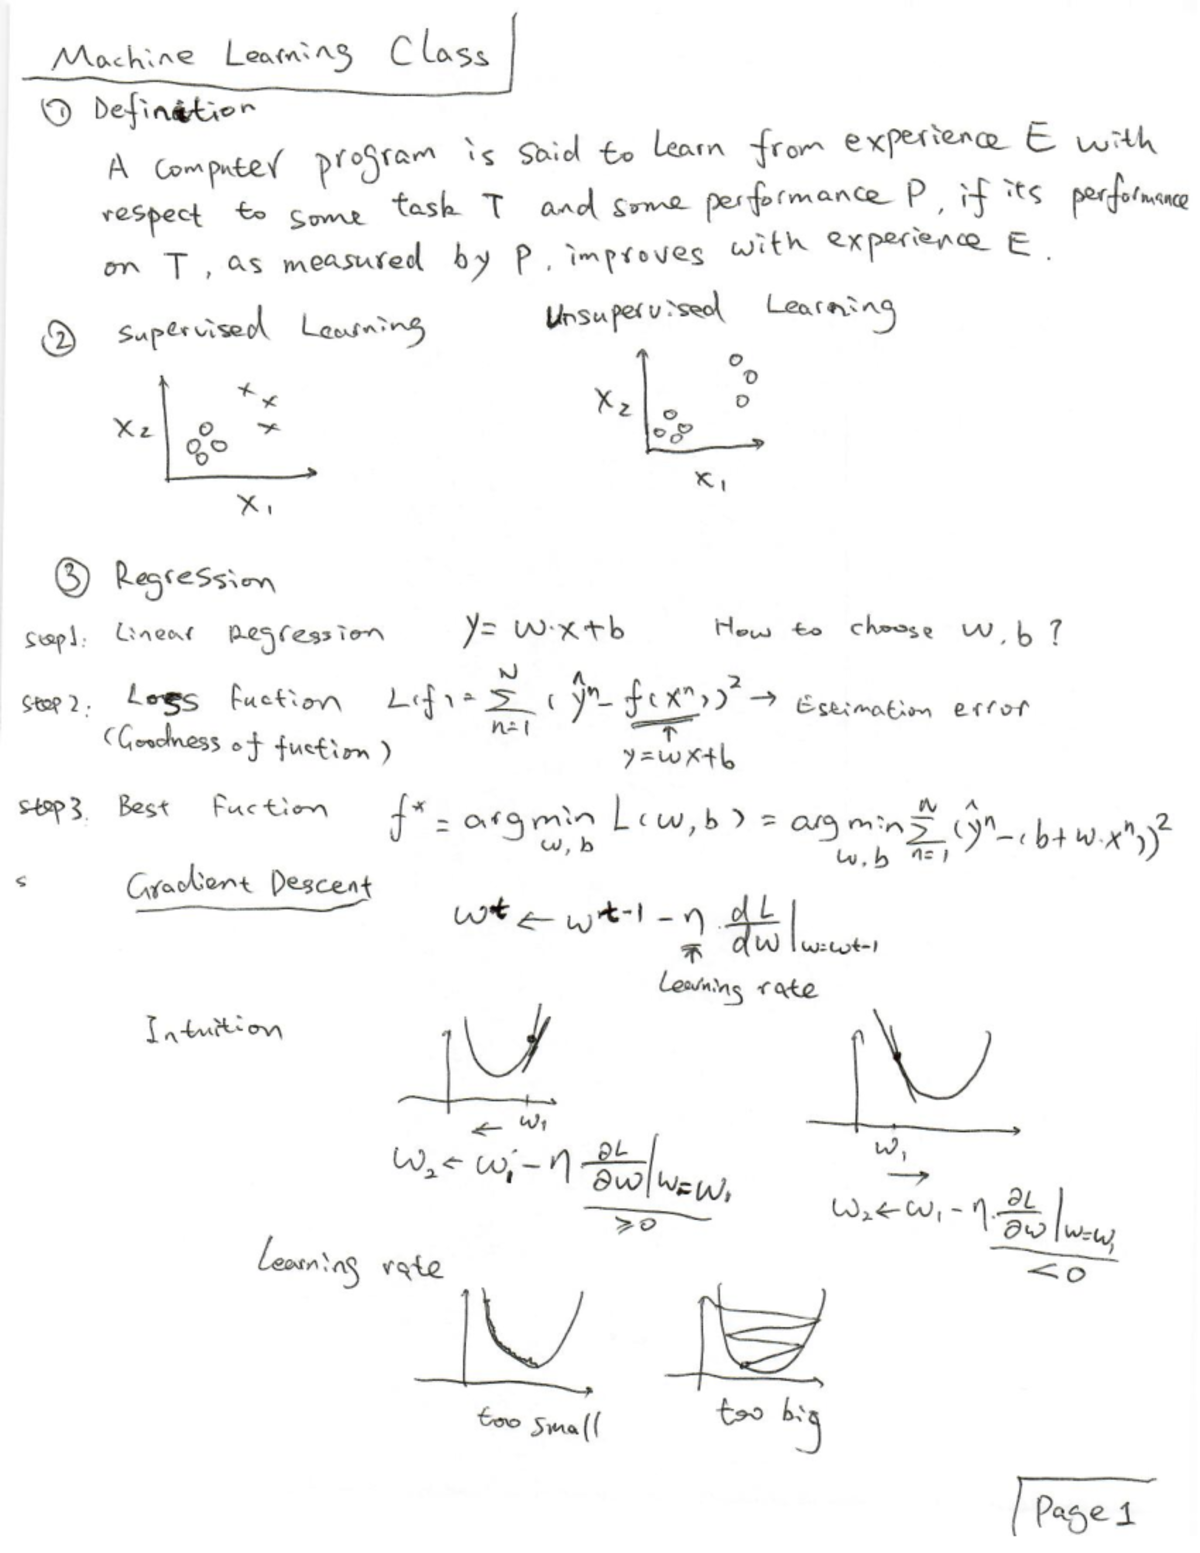 Machine Learning Class
① Definition
A computer program is said to learn from experience E with
respect to some task T and some performance P, if its performance
on T, as measured by P, improves with experience E.
② Supervised Learning
Unsupervised Learning
X₂
X₁
X₂
X₁
③ Regression
step1: Linear Regression y = w·x+b How to choose w, b?
step 2: Loss fuction L(f) = Σ_{n=1}^{N} (ŷⁿ - f(xⁿ))² → Estimation error
(Goodness of fuction) y=wx+b
step 3. Best Fuction f* = arg min_{w,b} L(w,b) = arg min_{w,b} Σ_{n=1}^{N} (ŷⁿ-(b+w·xⁿ))²
s
Gradient Descent
w^t ← w^{t-1} - η · dL/dw |_{w=w^{t-1}}
Learning rate
Intuition
← w₁
w₁
→
w₂ ← w₁ - η ∂L/∂w |_{w=w₁}
≥0
w₂ ← w₁ - η · ∂L/∂w |_{w=w₁}
<0
Learning rate
too small
too big
Page 1